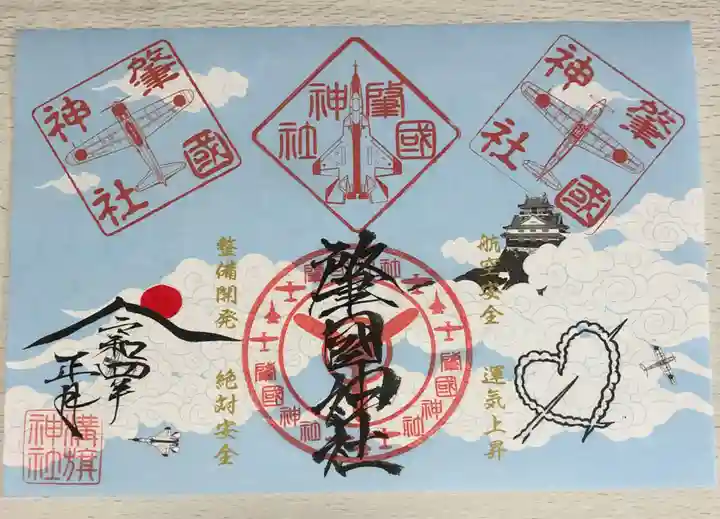 肇國
神社
肇國
神社
肇國
神社
航空安全
運気上昇
肇國神社
肇國神社
肇國神社
肇國神社
整備開発
絶対安全
令和四年
正月
溝旗
神社